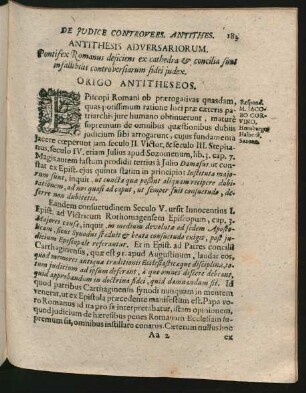 DE JUDICE CONTROVERS. ANTITHES. 185
ANTITHESIS ADVERSARIORUM.
Pontifex Romanus definiens ex cathedra & concilia sunt
infallibiles controversiarum fidei judex.
ORIGO ANTITHESEOS.
EPiscopi Romani ob prærogativas quasdam,
quas potissimum ratione loci præ cæteris pa-
triarchis jure humano obtinuerunt, maturè
supremum de omnibus quæstionibus dubiis
judicium sibi arrogarunt, cujus fundamenta
jacere coeperunt jam seculo II. Victor, & seculo III. Stepha-
nus, seculo IV. etiam Julius apud Sozomenum, lib. 3. cap. 7.
Magis autem fastum prodidit tertius à Julio Damasus ut con-
stat ex Epist. ejus quinta statim in principio: Instituta majo-
rum sunt, inquit, ut cuncta quæ possunt aliquam recipere dubi-
tationem, ad nos quasi ad caput, ut semper fuit consuetudo, de-
ferre non dubitetis.
Respond.
M. JACO
BO COR-
VINO,
Homburgo
Saxone.
Eandem consuetudinem Seculo V. ursit Innocentius I.
Epist. ad Victricum Rothomagensem Episcopum, cap. 3.
Majores causæ, inquit, in medium devolutæ ad sedem Aposto-
licam, sicut Synodus statuit & beata consuetudo exigit, post ju-
dicium Episcopale referantur. Et in Epist. ad Patres concilii
Carthaginensis, quæ est 91. apud Augustinum, laudat eos,
quod memores antiquæ traditionis Ecclesiasticæque disciplinæ, to-
tum judicium ad ipsum deferant, à quo omnes discere debeant,
quid approbandum in doctrina fidei, quid damnandum sit. Id
quod patribus Carthaginensis synodi nunquam in mentem
venerit, ut ex Epistola præcedente manifestum est. Papa ve-
ro Romanus id ita pro se interpretabatur, istam opinionem,
quod judicium de hæresibus penes Romanam Ecclesiam su-
premum sit, omnibus instillare conatus. Cæterum nullus hoc
Aa 2 ex